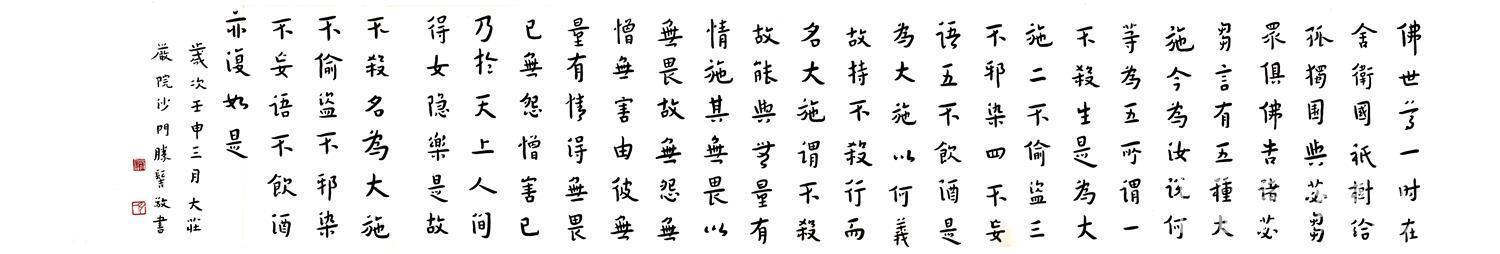 佛世尊一时在
舍衛國祇樹給
孤獨園與苾芻
眾俱佛告諸苾
芻言有五種大
施今為汝说何
等為五所谓一
不殺生是為大
施二不偷盜三
不邪染四不妄
语五不飲酒是
為大施以何義
故持不殺行而
名大施谓不殺
故能與無量有
情施其無畏以
無畏故無怨無
憎無害由彼無
量有情得無畏
已無怨憎害已
乃於天上人间
得安隐樂是故
不殺名為大施
不偷盜不邪染
不妄语不飲酒
亦復如是
歲次壬申三月大莊
嚴院沙門勝髻敬書